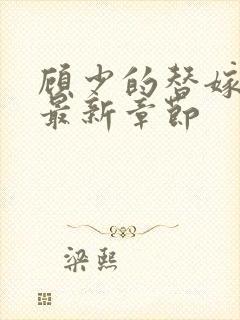 顾少的替嫁
最新章节
梁熙